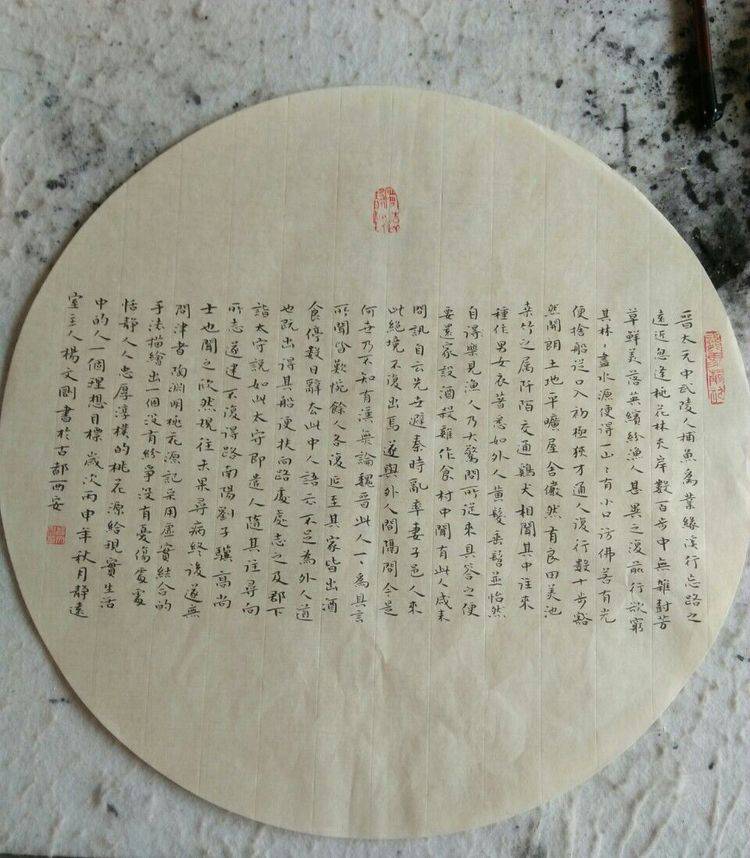 晉太元中武陵人捕魚為業緣溪行忘路之
遠近忽逢桃花林夹岸數百步中無雜尌芳
草鮮美落英繽紛漁人甚異之復前行欲窮
其林林盡水源便得一山山有小口彷佛若有光
便捨船從口入初極狹才通人復行數十步豁
然開朗土地平曠屋舍儼然有良田美池
桑竹之属阡陌交通鷄犬相聞其中往來
種作男女衣著悉如外人黄髮垂髫並怡然
自得樂見漁人乃大驚問所從來具答之便
要還家設酒殺雞作食村中聞有此人咸来
問訊自云先世避秦時亂率妻子邑人來
此絶境不復出焉遂與外人間隔問今是
何世乃不知有漢無論魏晉此人一一為具言
所聞皆歎惋餘人各復延至其家皆出酒
食停數日辭去此中人語云不足為外人道
也既出得其船便扶向路處處志之及郡下
詣太守説如此太守即遣人隨其往尋向
所志遂迷不復得路南陽劉子驥高尚
士也聞之欣然規往未果尋病終後遂無
問津者陶淵明桃花源記采用虛實結合的
手法描繪出一個没有紛爭没有憂傷處處
恬靜人人忠厚淳樸的桃花源給現實生活
中的人一個理想目標歲次丙申年秋月靜遠
室主人楊文剛書於古都西安